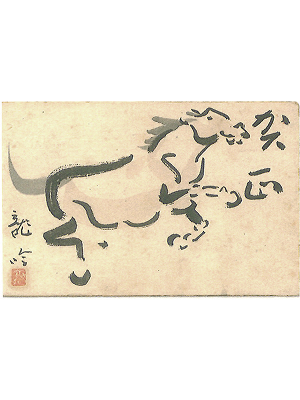 賀正
龍吟